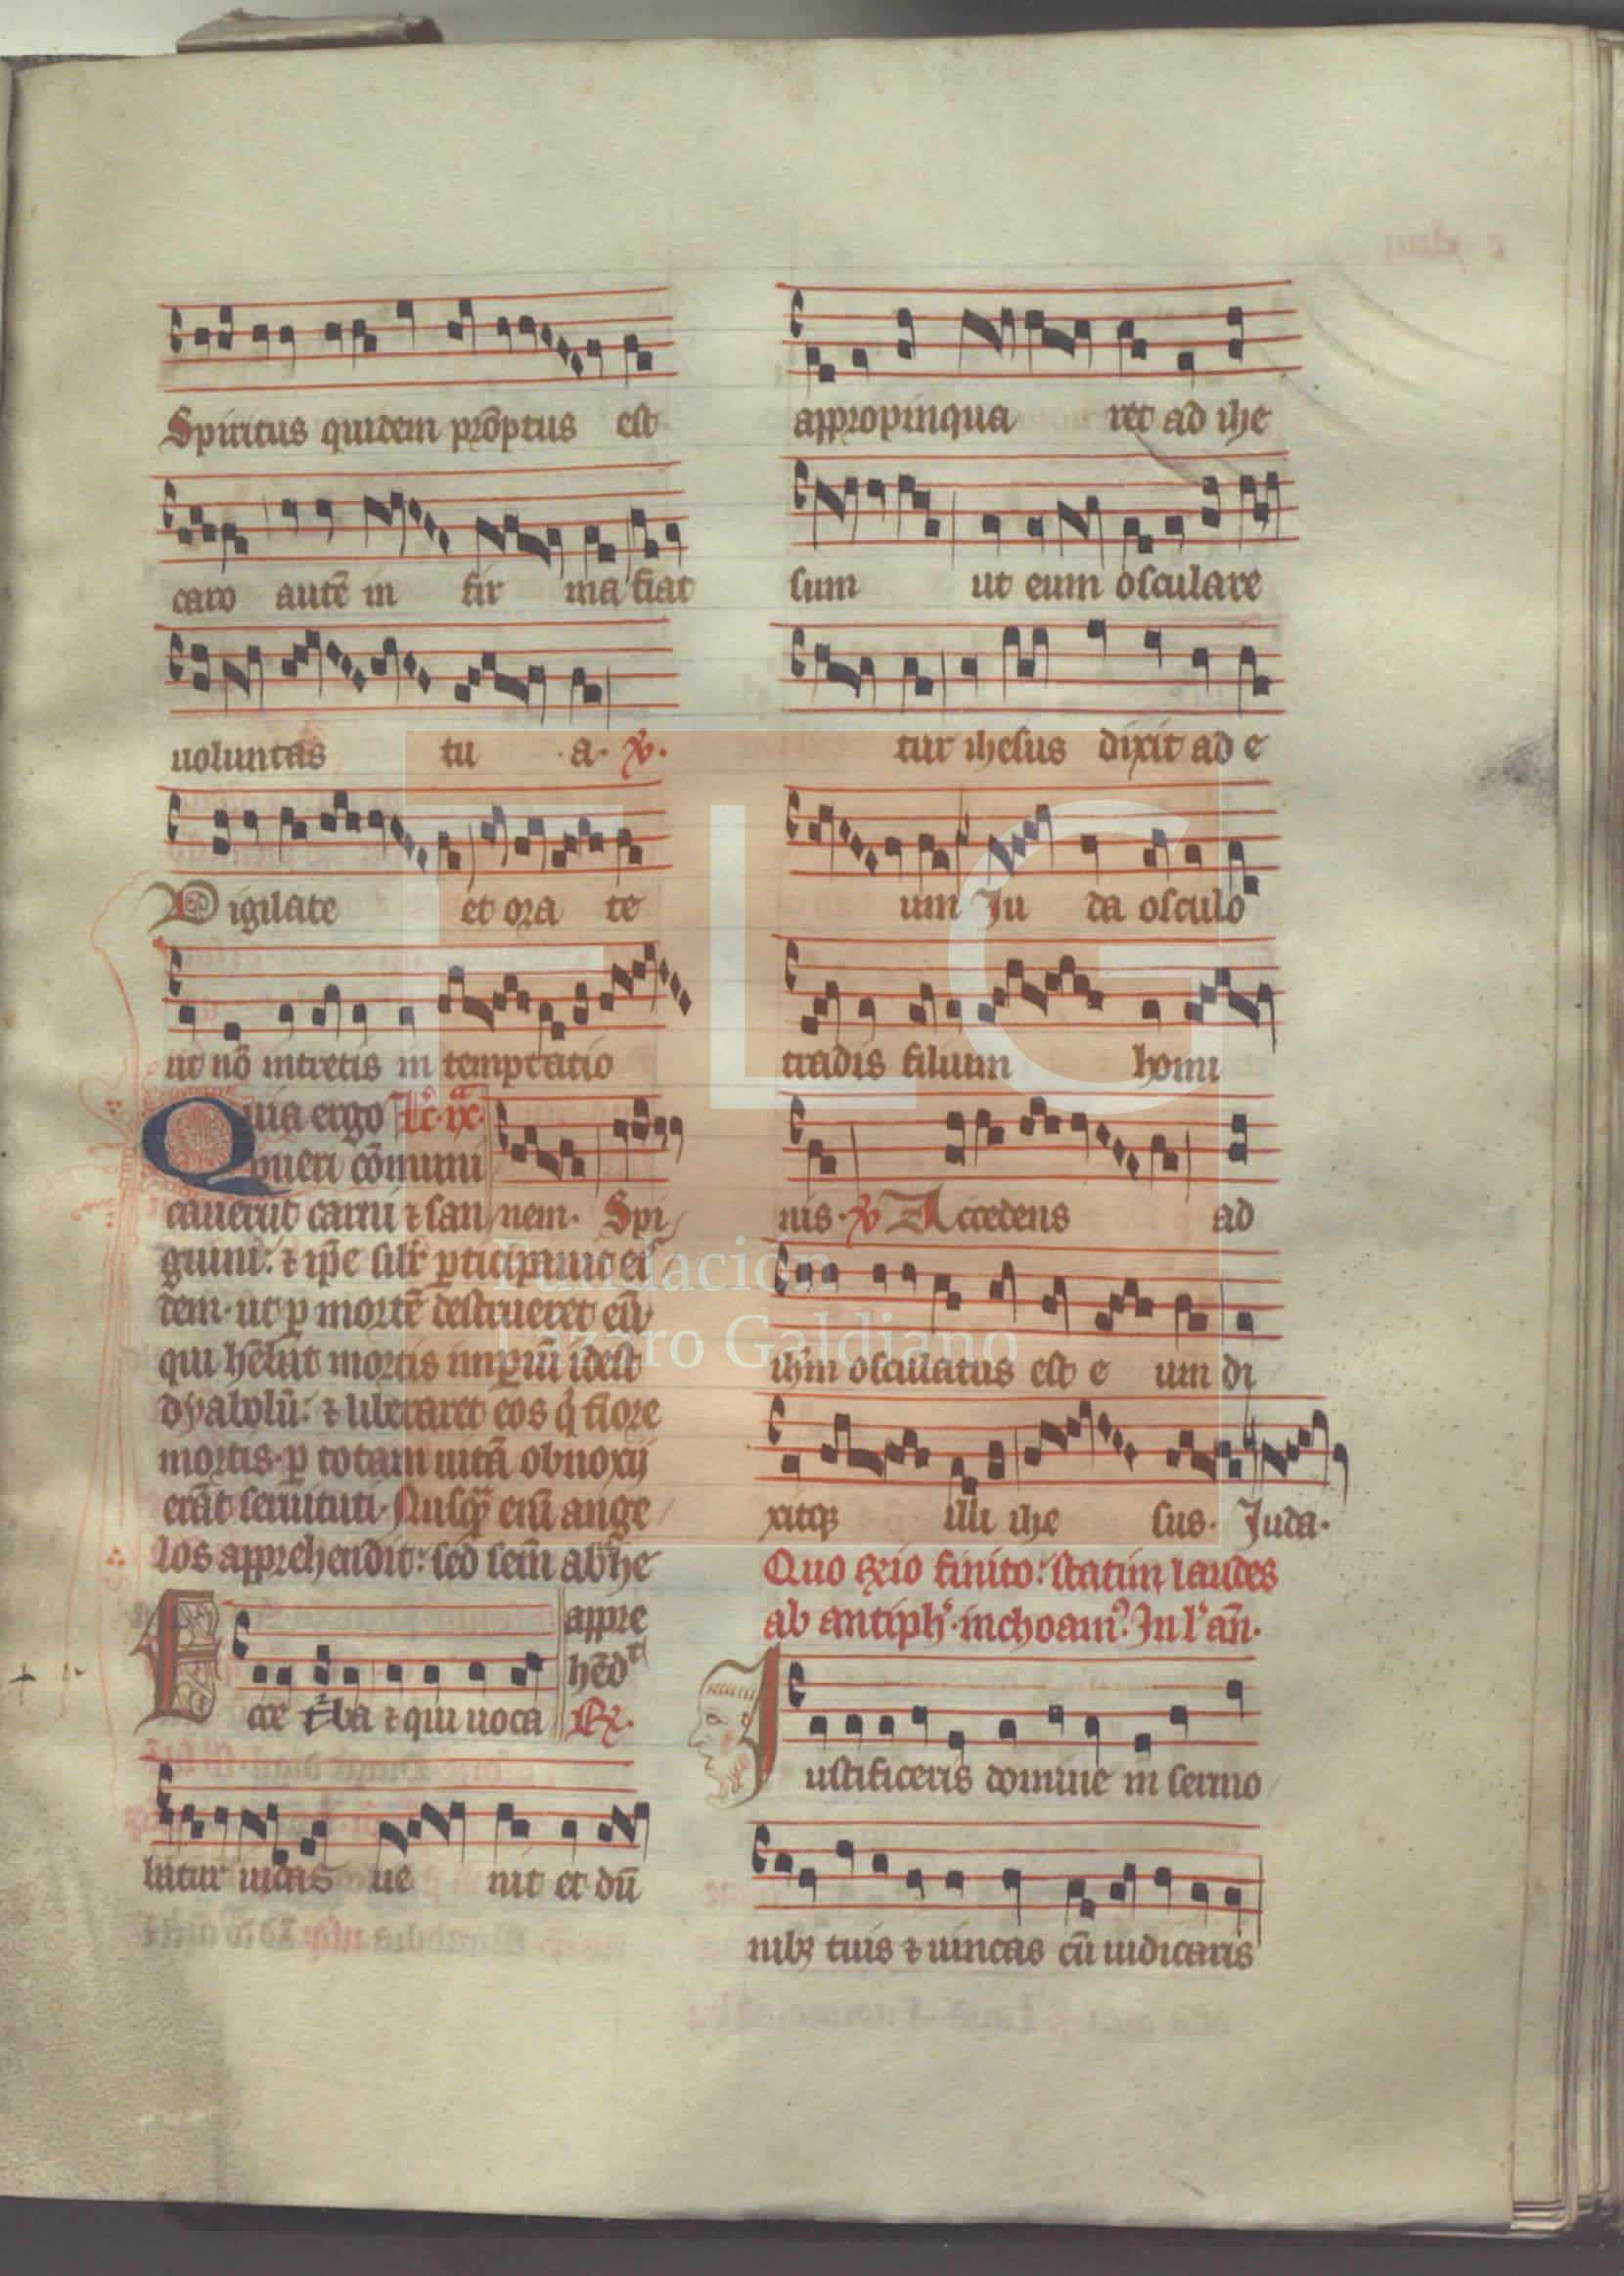 Spiritus quidem prõptus est
caro autẽ in fir ma fiat
uoluntas tu a. ℣.
Vigilate et ora te
ut nõ intretis in temptatio
Quia ergo lc̃. ix.
pueri cõmuni
cauerũt carni ⁊ san nem. Spi
guini: ⁊ ip̃e silr̃ participauit eis
dem. ut ꝑ mortẽ destrueret eũ
qui hẽbat mortis imꝑiũ idest
dyabolũ: ⁊ liberaret eos q̇ tiore
mortis. ꝑ totam uitã obnoxij
erãt seruituti. Nusq̃ eni ange
los apprehendit: sed sem̃ abr̃he
appre
hẽdit
Ecce t̃ba ⁊ qui uoca ℟.
batur iudas ue nit et dũ
appropinqua ret ad ihe
sum ut eum osculare
tur ihesus dixit ad e
um Ju da osculo
tradis filium homi
nis. ℣ Accedens ad
ihm̃ osculatus est e um di
xitqꝫ illi ihe sus. Juda.
Quo ℟rio finito: statim laudes
ab antiph̃. inchoam᷒. In l' añ.
Iustificeris domine in sermo
nibꝫ tuis ⁊ uincas cũ iudicaris
FLG
Fundación
Lázaro Galdiano